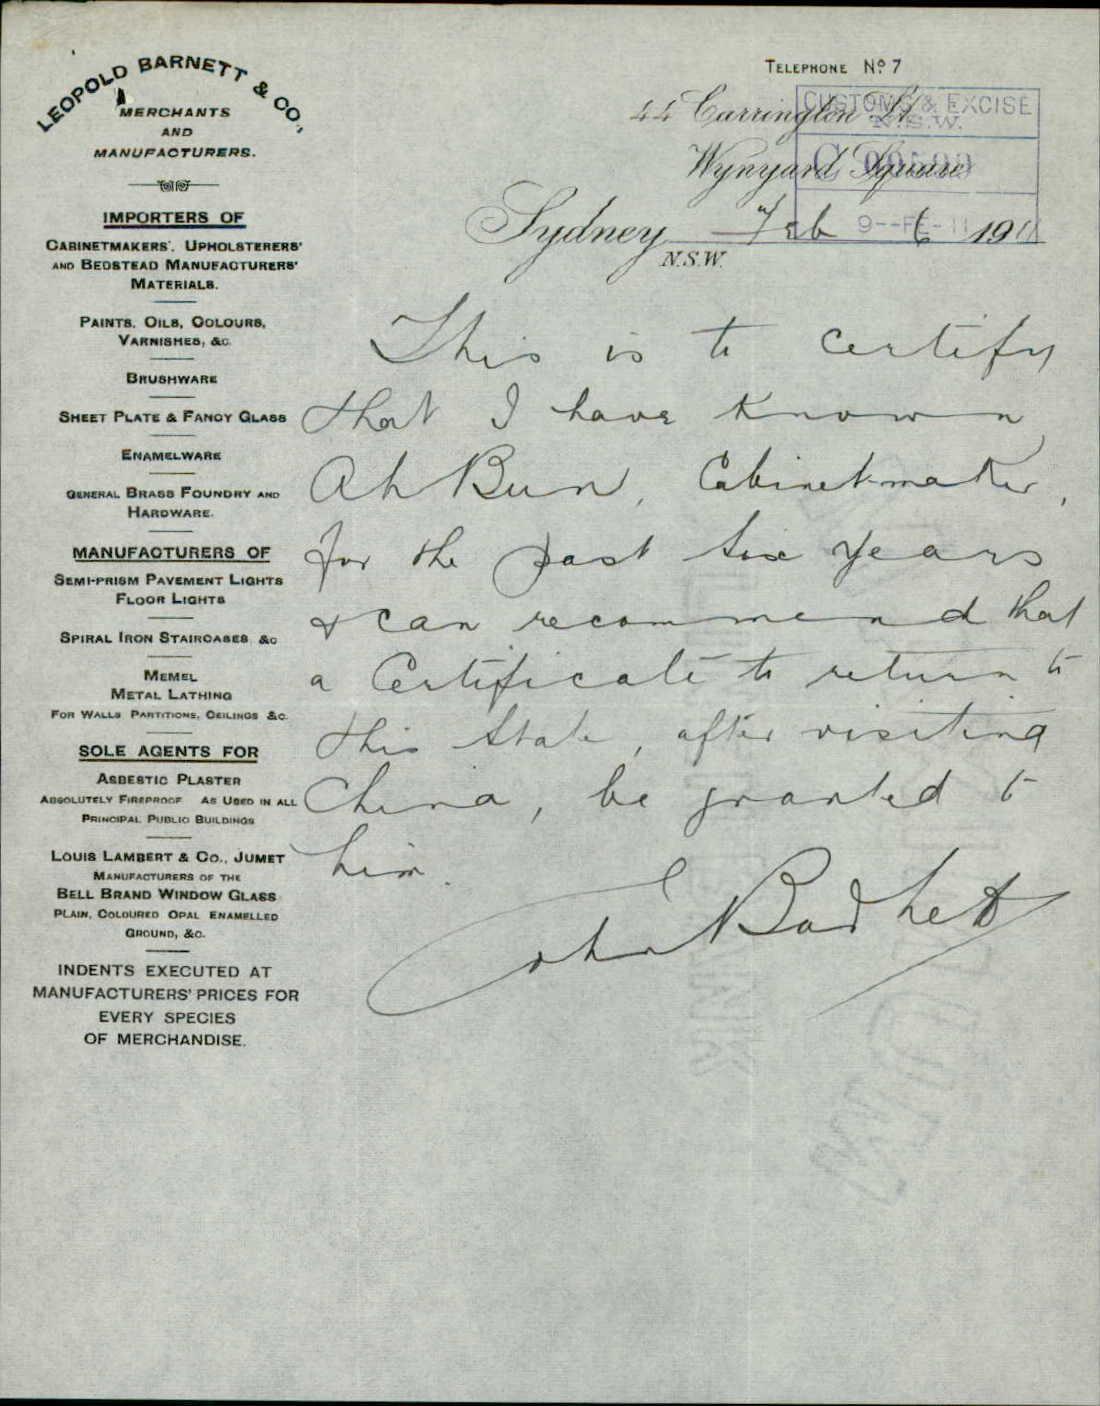 LEOPOLD BARNETT & CO.,
MERCHANTS
AND
MANUFACTURERS.
IMPORTERS OF
CABINETMAKERS', UPHOLSTERERS'
AND BEDSTEAD MANUFACTURERS'
MATERIALS.
PAINTS, OILS, COLOURS,
VARNISHES, &C.
BRUSHWARE
SHEET PLATE & FANCY GLASS
ENAMELWARE
GENERAL BRASS FOUNDRY AND
HARDWARE.
MANUFACTURERS OF
SEMI-PRISM PAVEMENT LIGHTS
FLOOR LIGHTS
SPIRAL IRON STAIRCASES &C
MEMEL
METAL LATHING
FOR WALLS PARTITIONS, CEILINGS &C.
SOLE AGENTS FOR
ASBESTIC PLASTER
ABSOLUTELY FIREPROOF AS USED IN ALL
PRINCIPAL PUBLIC BUILDINGS
LOUIS LAMBERT & CO., JUMET
MANUFACTURERS OF THE
BELL BRAND WINDOW GLASS
PLAIN, COLOURED OPAL ENAMELLED
GROUND, &C.
INDENTS EXECUTED AT
MANUFACTURERS' PRICES FOR
EVERY SPECIES
OF MERCHANDISE.
TELEPHONE Nº 7
44 Carrington St.
Wynyard Square
CUSTOMS & EXCISE
N.S.W.
9--FE-11
Sydney Feb 6 1911
N.S.W.
This is to certify
that I have known
Ah Bun, Cabinet-maker,
for the past six years
& can recommend that
a Certificate to return to
this State, after visiting
China, be granted to
him.
John